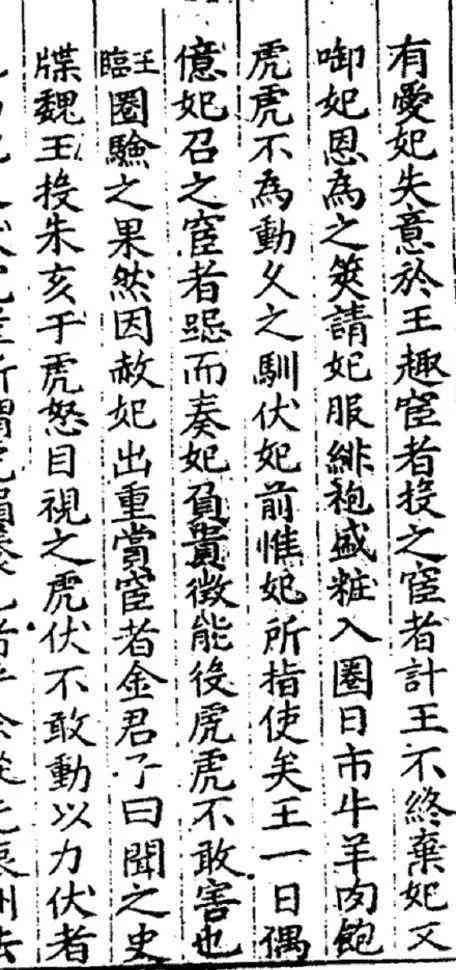 有愛妃失意於王趣宦者投之宦者計王不終棄妃又
啣妃恩為之筴請妃服緋袍盛粧入圈日市牛羊肉飽
虎虎不為動久之馴伏妃前惟妃所指使矣王一日偶
億妃召之宦者跽而奏妃負貴徵能役虎虎不敢害也
王臨圈驗之果然因赦妃出重賞宦者金君子曰聞之史
牒魏王投朱亥于虎怒目視之虎伏不敢動以力伏者